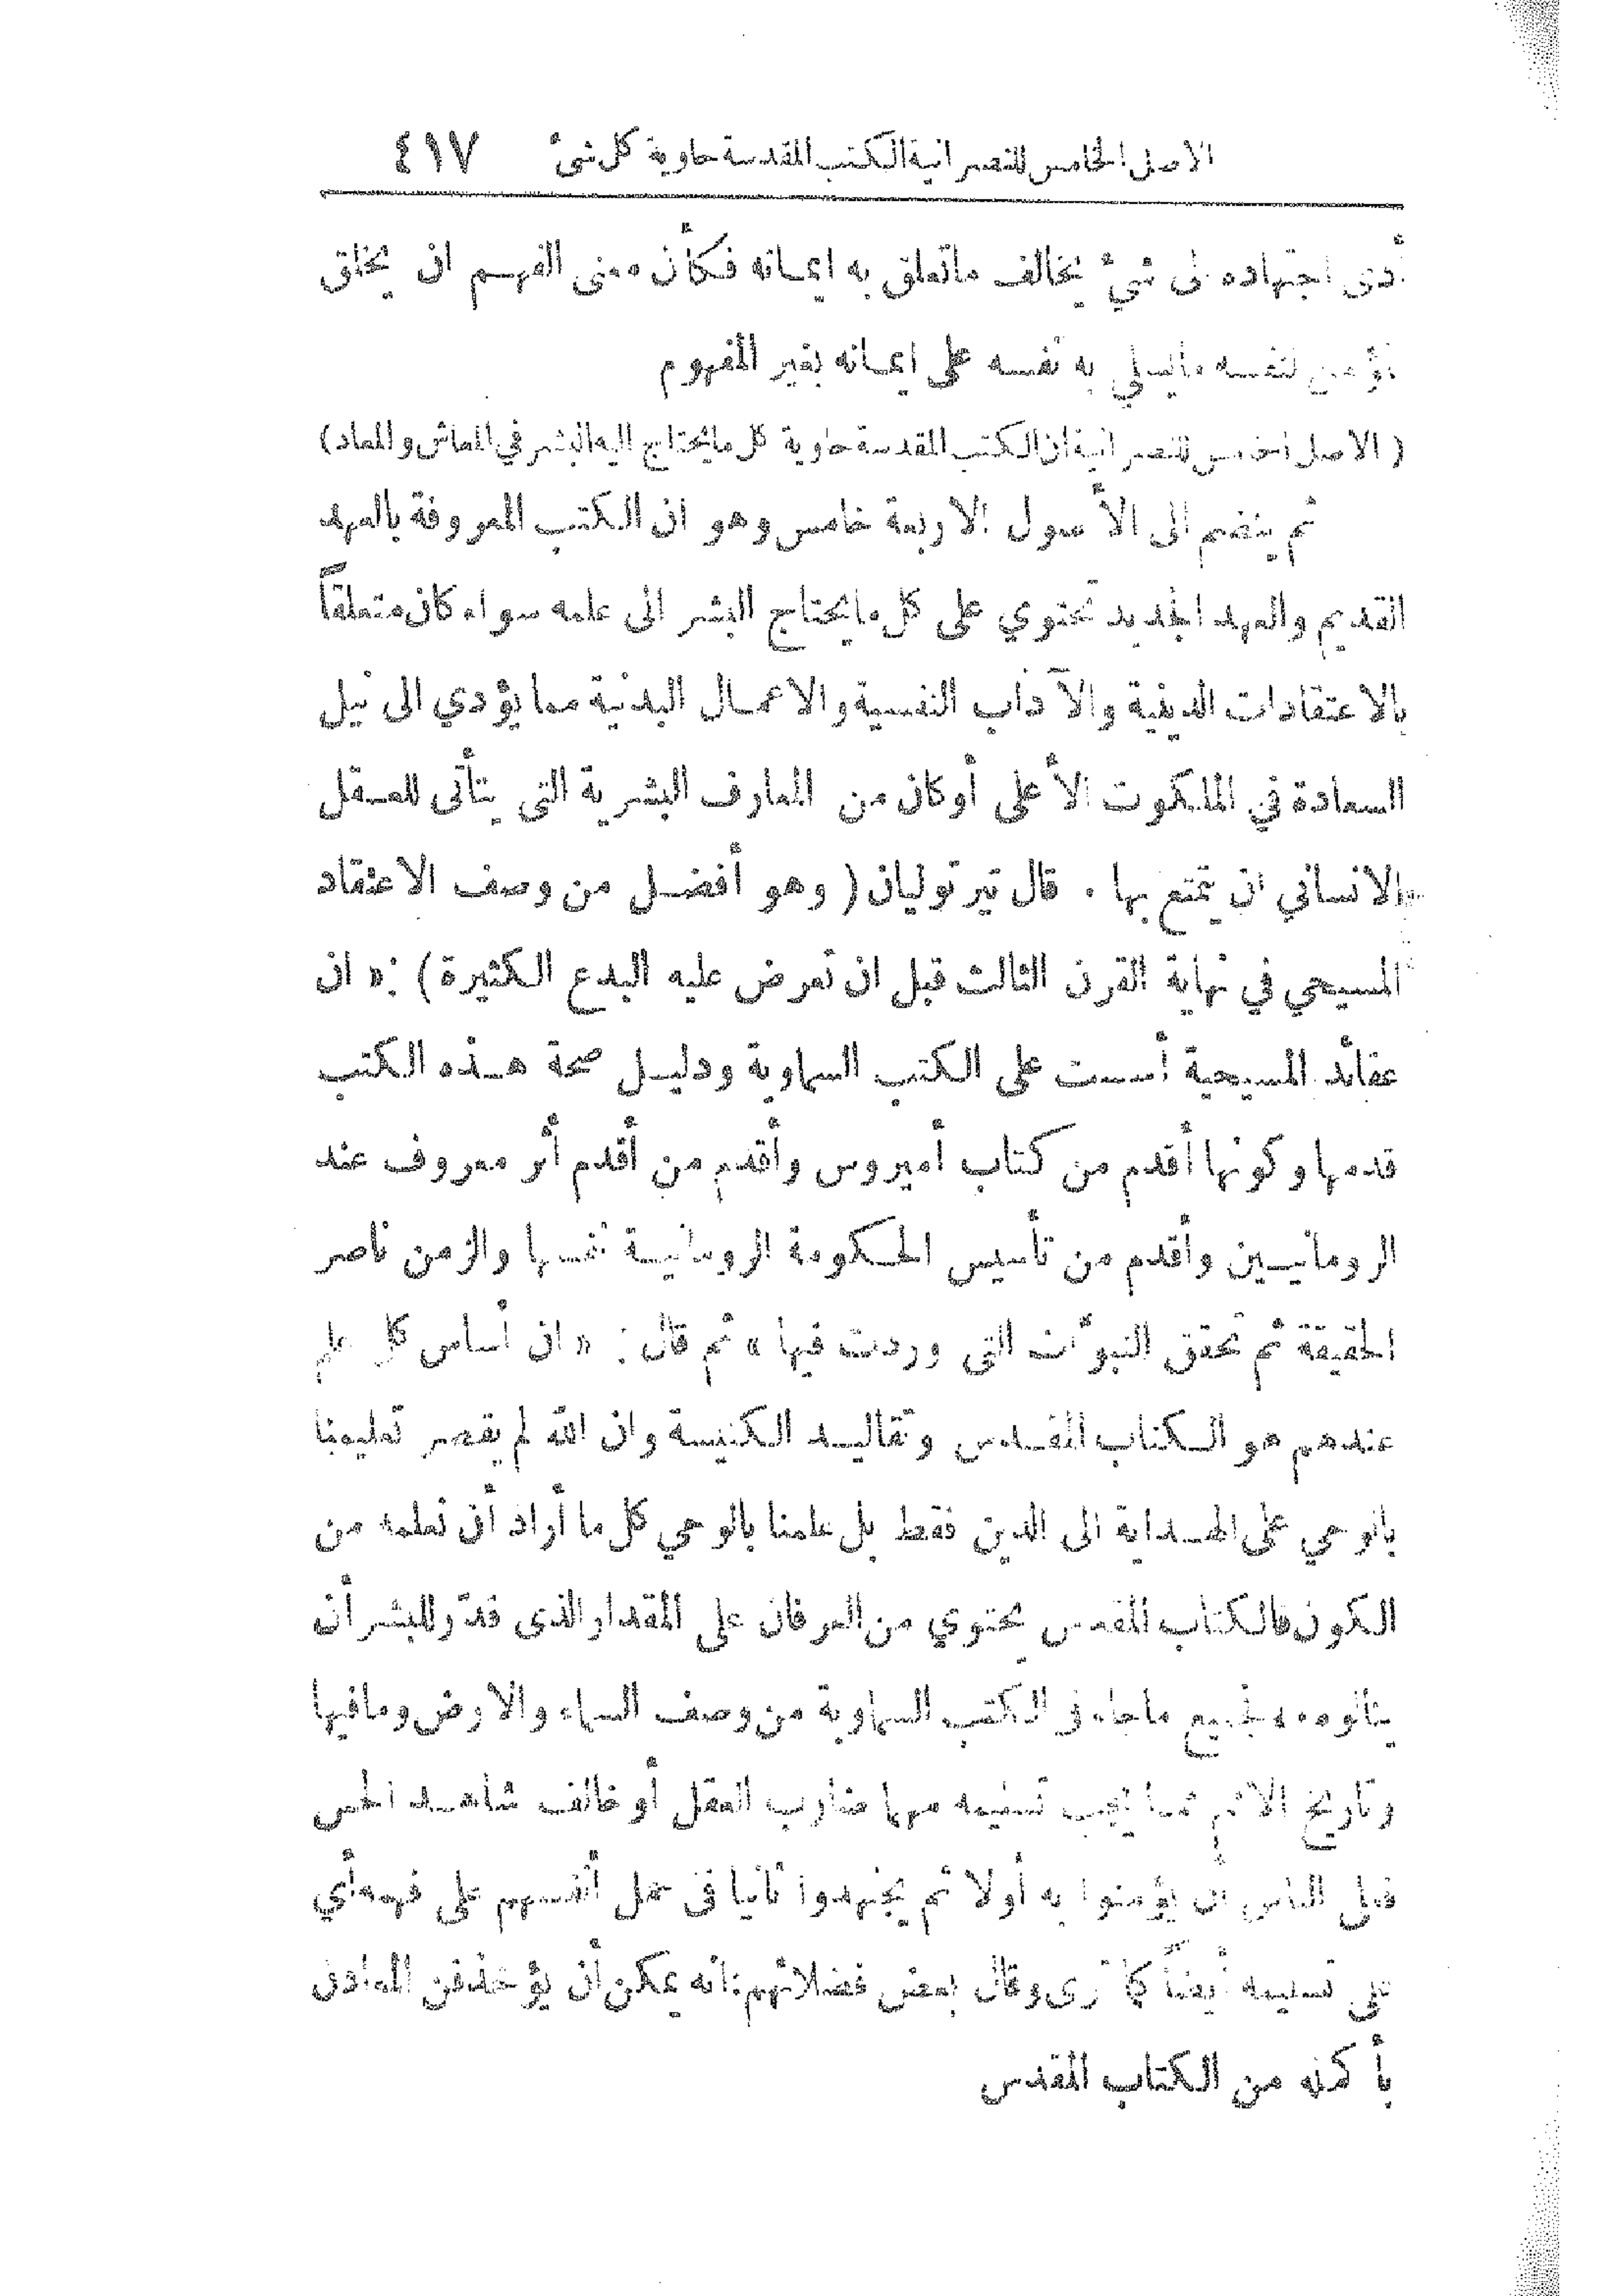 الاصل الخامس للنصرانية الكتب المقدسة حاوية كل شئ ٤١٧
أدى اجتهاده الى شيء يخالف ماتعلق به ايمانه فكأن معنى الفهم ان يخلق
لنفسه مايسلي به نفسه على ايمانه بغير المفهوم
( الاصل الخامس للنصرانية ان الكتب المقدسة حاوية كل مايحتاج اليه البشر في المعاش والمعاد )
ثم ينضم الى الأصول الاربعة خامس وهو ان الكتب المعروفة بالعهد
القديم والعهد الجديد تحتوي على كل مايحتاج البشر الى علمه سواء كان متعلقاً
بالاعتقادات الدينية والآداب النفسية والاعمال البدنية مما يؤدي الى نيل
السعادة في الملكوت الأعلى أوكان من المعارف البشرية التى يتأتى للعقل
الانساني ان يتمتع بها . قال تيرتوليان ( وهو أفضل من وصف الاعتقاد
المسيحي في نهاية القرن الثالث قبل ان تعرض عليه البدع الكثيرة ) : « ان
عقائد المسيحية أسست على الكتب السماوية ودليل صحة هذه الكتب
قدمها وكونها أقدم من كتاب أميروس وأقدم من أقدم أثر معروف عند
الرومانيين وأقدم من تأسيس الحكومة الرومانية نفسها والزمن ناصر
الحقيقة ثم تحقق النبوآت التى وردت فيها » ثم قال : « ان أساس كل علم
عندهم هو الكتاب المقدس وتقاليد الكنيسة وان الله لم يقصر تعليمنا
بالوحي على الهداية الى الدين فقط بل علمنا بالوحي كل ما أراد أن نعلمه من
الكون فالكتاب المقدس يحتوي من العرفان على المقدار الذى قدّر للبشر أن
ينالوه فجميع ماجاء فى الكتب السماوية من وصف السماء والارض ومافيها
وتاريخ الامم مما يجب تسليمه مهما ضارب العقل أو خالف شاهد الحس
فعلى الناس ان يؤمنوا به أولا ثم يجتهدوا ثانيا فى حمل أنفسهم على فهمه أي
على تسليمه أيضاً كما ترى وقال بعض فضلائهم : انه يمكن أن يؤخذ فن المعادن
بأكمله من الكتاب المقدس